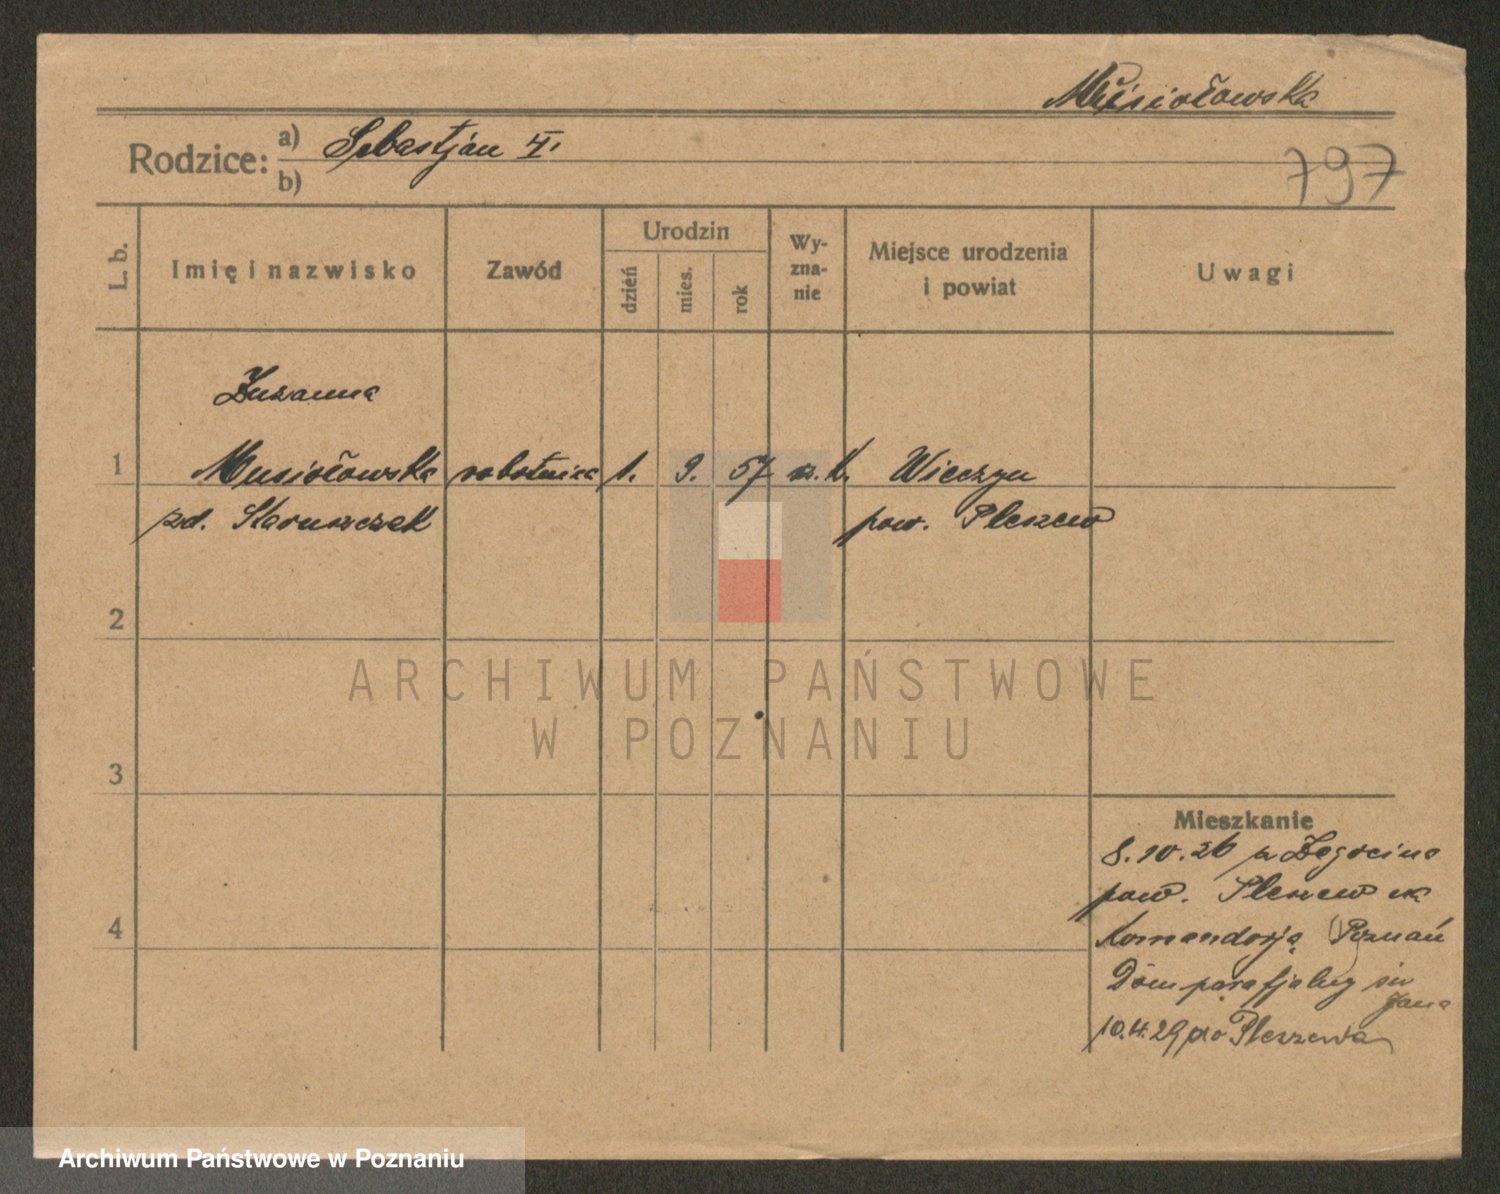 Musiołowska
Rodzice: a) Sebastjan
b)
797
L. b.
Imię i nazwisko
Zawód
Urodzin
dzień
mies.
rok
Wy-
zna-
nie
Miejsce urodzenia
i powiat
Uwagi
Zuzanna
1 Musiołowska robotnica 1. 9. 57 rz. k. Wieczyn
zd. Staruszczak pow. Pleszew
2
3
4
Mieszkanie
8.10.26 z Żegocina
pow. Pleszew na
Komandorją (Poznań
Dom parafjalny św
Jana
10.4.29 do Pleszewa
ARCHIWUM PAŃSTWOWE
W POZNANIU
Archiwum Państwowe w Poznaniu